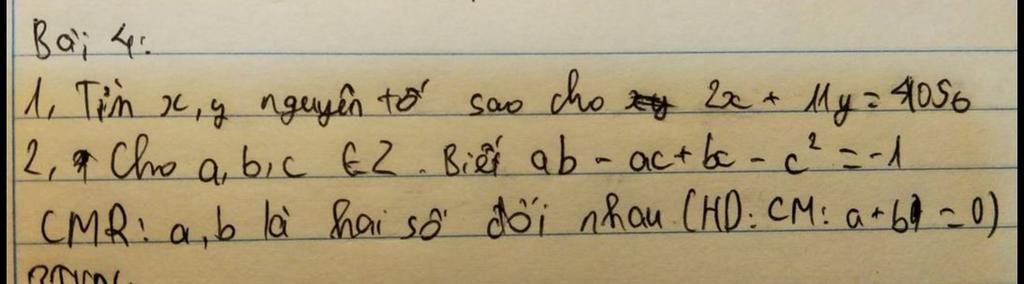 Bài 4:
1, Tìm x, y nguyên tố sao cho 2x + 11y = 4056
2, Cho a, b, c ∈ Z. Biết ab - ac + bc - c² = -1
CMR: a, b là hai số đối nhau (HD: CM: a + b = 0)